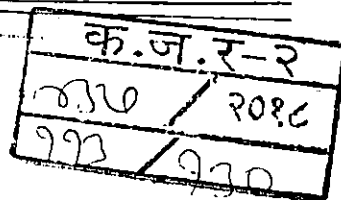 क.ज.र-२
/ २०१८
११३ / १३०